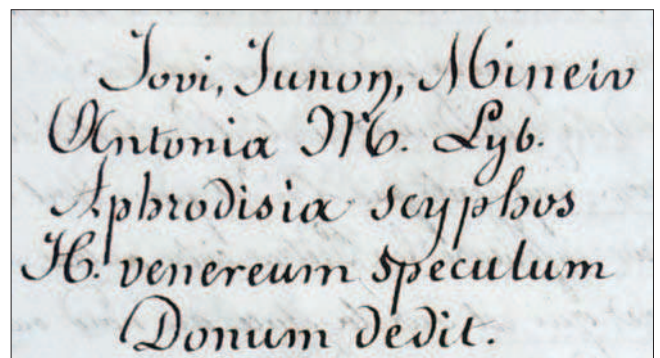 Jovi, Junon, Minerv
Antonia M. Lyb.
Aphrodisia scyphos
H. venereum speculum
Donum dedit.